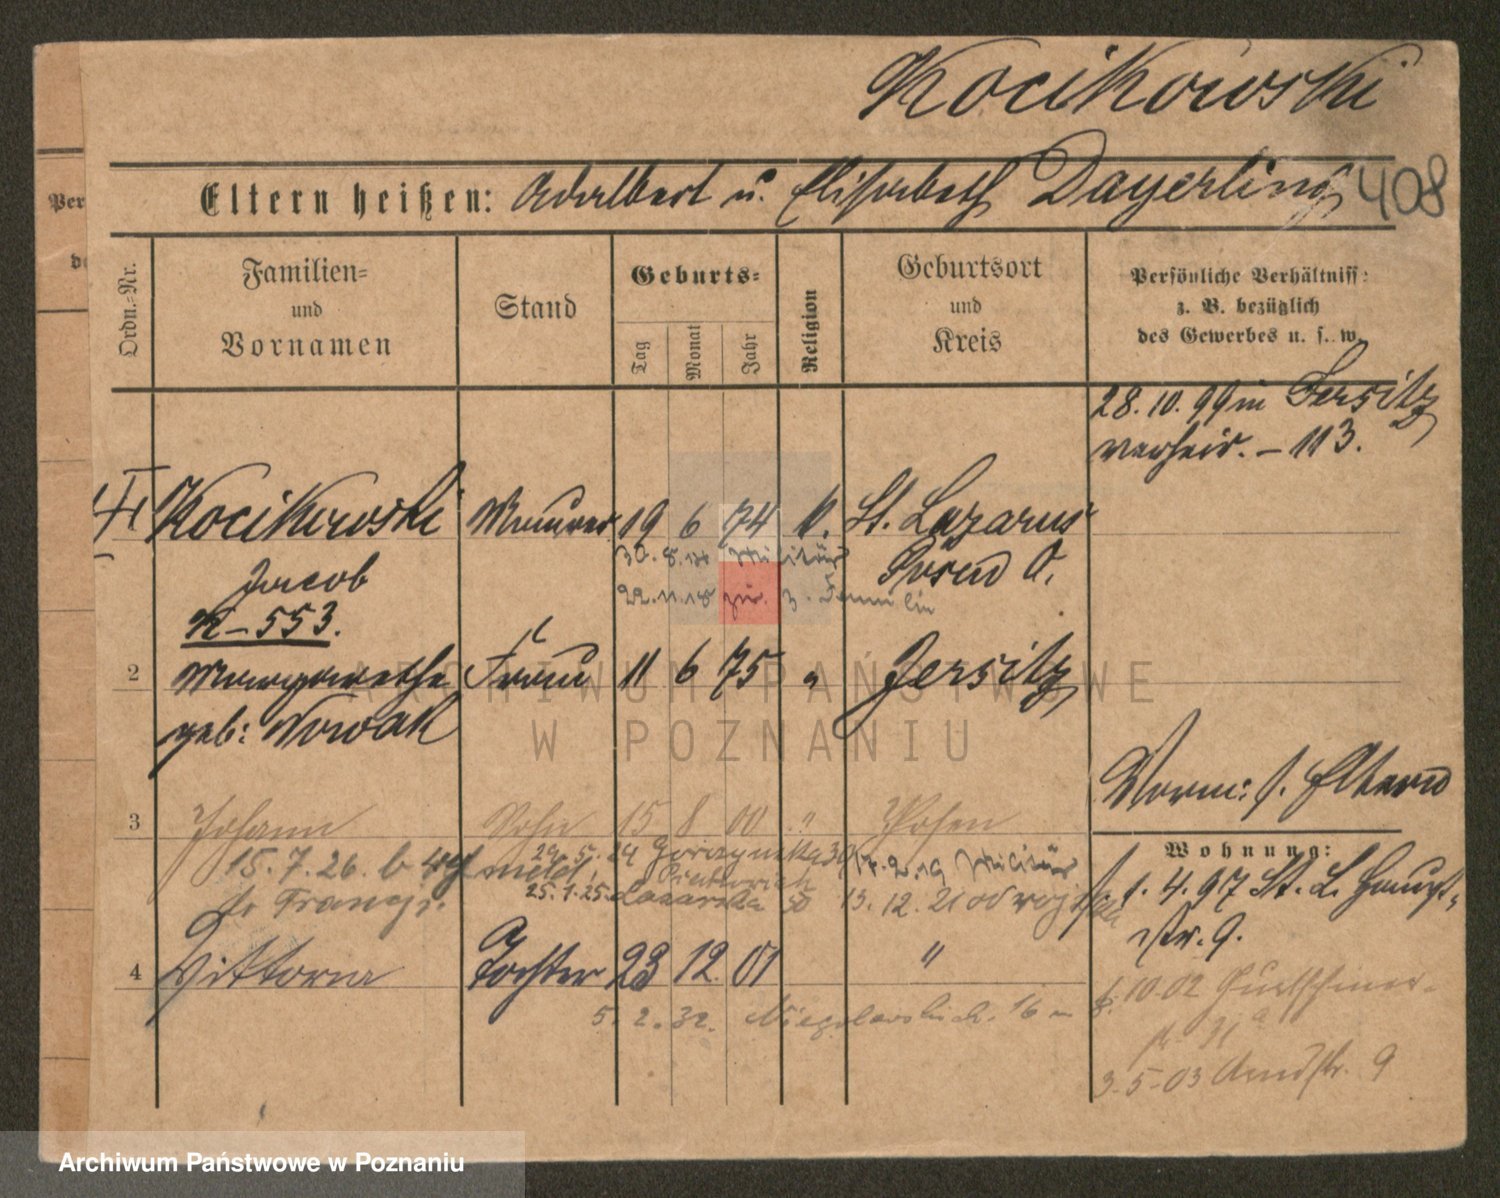 Kocikowski
Eltern heißen: Adalbert u. Elisabeth Dayerling 408
Ordn.-Nr.
Familien- und Vornamen
Stand
Geburts-
Tag Monat Jahr
Religion
Geburtsort und Kreis
Persönliche Verhältniss-
z. B. bezüglich
des Gewerbes u. s. w.
28. 10. 99 in Jersitz
verheir. - 113.
Kocikowski Maurer 19 6 74 k. St. Lazarus
Jacob 30.8. Militär Posen O.
K-553. 22.11.18 zur. 3.
2 Margarethe Frau 11 6 75 " Jersitz
geb: Nowak
Worm: s. Eltern
3 Johann Sohn 15 8 00 " Posen
Wohnung:
15.7.26. 29.5.19 Gorczynska 30 17.2.19 Militär
fr Francj. 25.1.25. Lazarska 50 13.12.21
1.4.97 St. L. Haupt-
str. 9.
4 Viktoria Tochter 23 12 01 "
5.2.32. 16
1.10.02
31a
3.5.03 Arndtstr. 9
ARCHIWUM PAŃSTWOWE
W POZNANIU
Archiwum Państwowe w Poznaniu